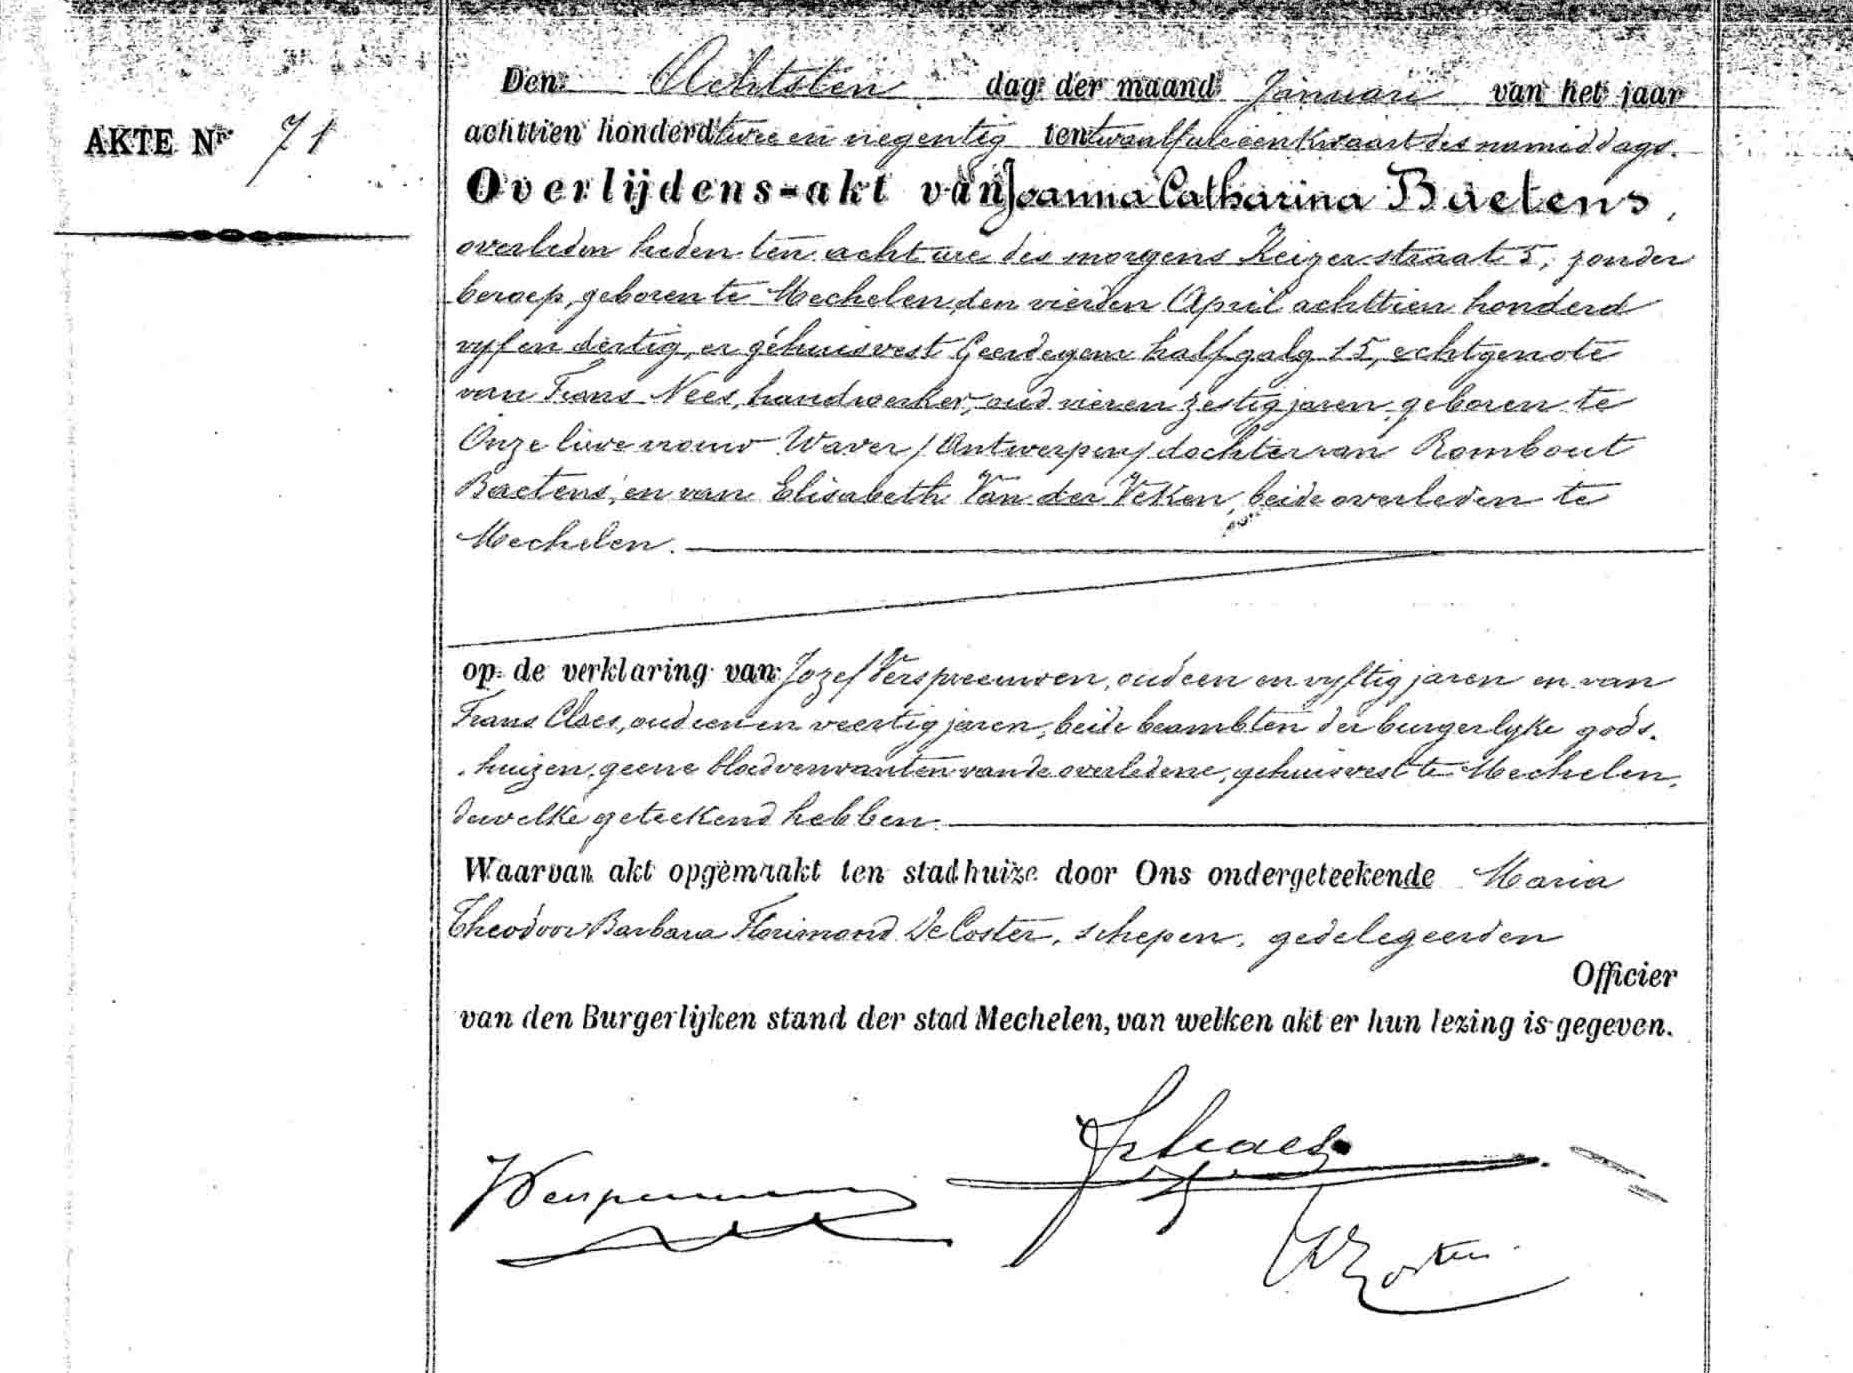 AKTE Nr 71
Den Achtsten dag der maand Januari van het jaar
achttien honderd twee en negentig ten twaalf ure een kwaart des namiddags.
Overlijdens-akt van Joanna Catharina Baetens,
overleden heden ten acht ure des morgens Keizerstraat 5, zonder
beroep, geboren te Mechelen, den vierden April achttien honderd
vyf en dertig, en gehuisvest Geerdegem half galg 15, echtgenote
van Frans Nees, handwerker, oud vier en zestig jaren, geboren te
Onze lieve vrouw Waver / Antwerpen / dochter van Rombout
Baetens, en van Elisabeth Van der Veken, beide overleden te
Mechelen.
op de verklaring van Jozef Verspreeuwen, oud een en vyftig jaren en van
Frans Claes, oud een en veertig jaren, beide beambten der burgerlyke gods-
huizen, geene bloedverwanten van de overledene, gehuisvest te Mechelen,
dewelke geteekend hebben.
Waarvan akt opgemaakt ten stadhuize door Ons ondergeteekende Maria
Theodoor Barbara Florimond De Coster, schepen, gedelegeerden
Officier
van den Burgerlijken stand der stad Mechelen, van welken akt er hun lezing is gegeven.
Fr Claes